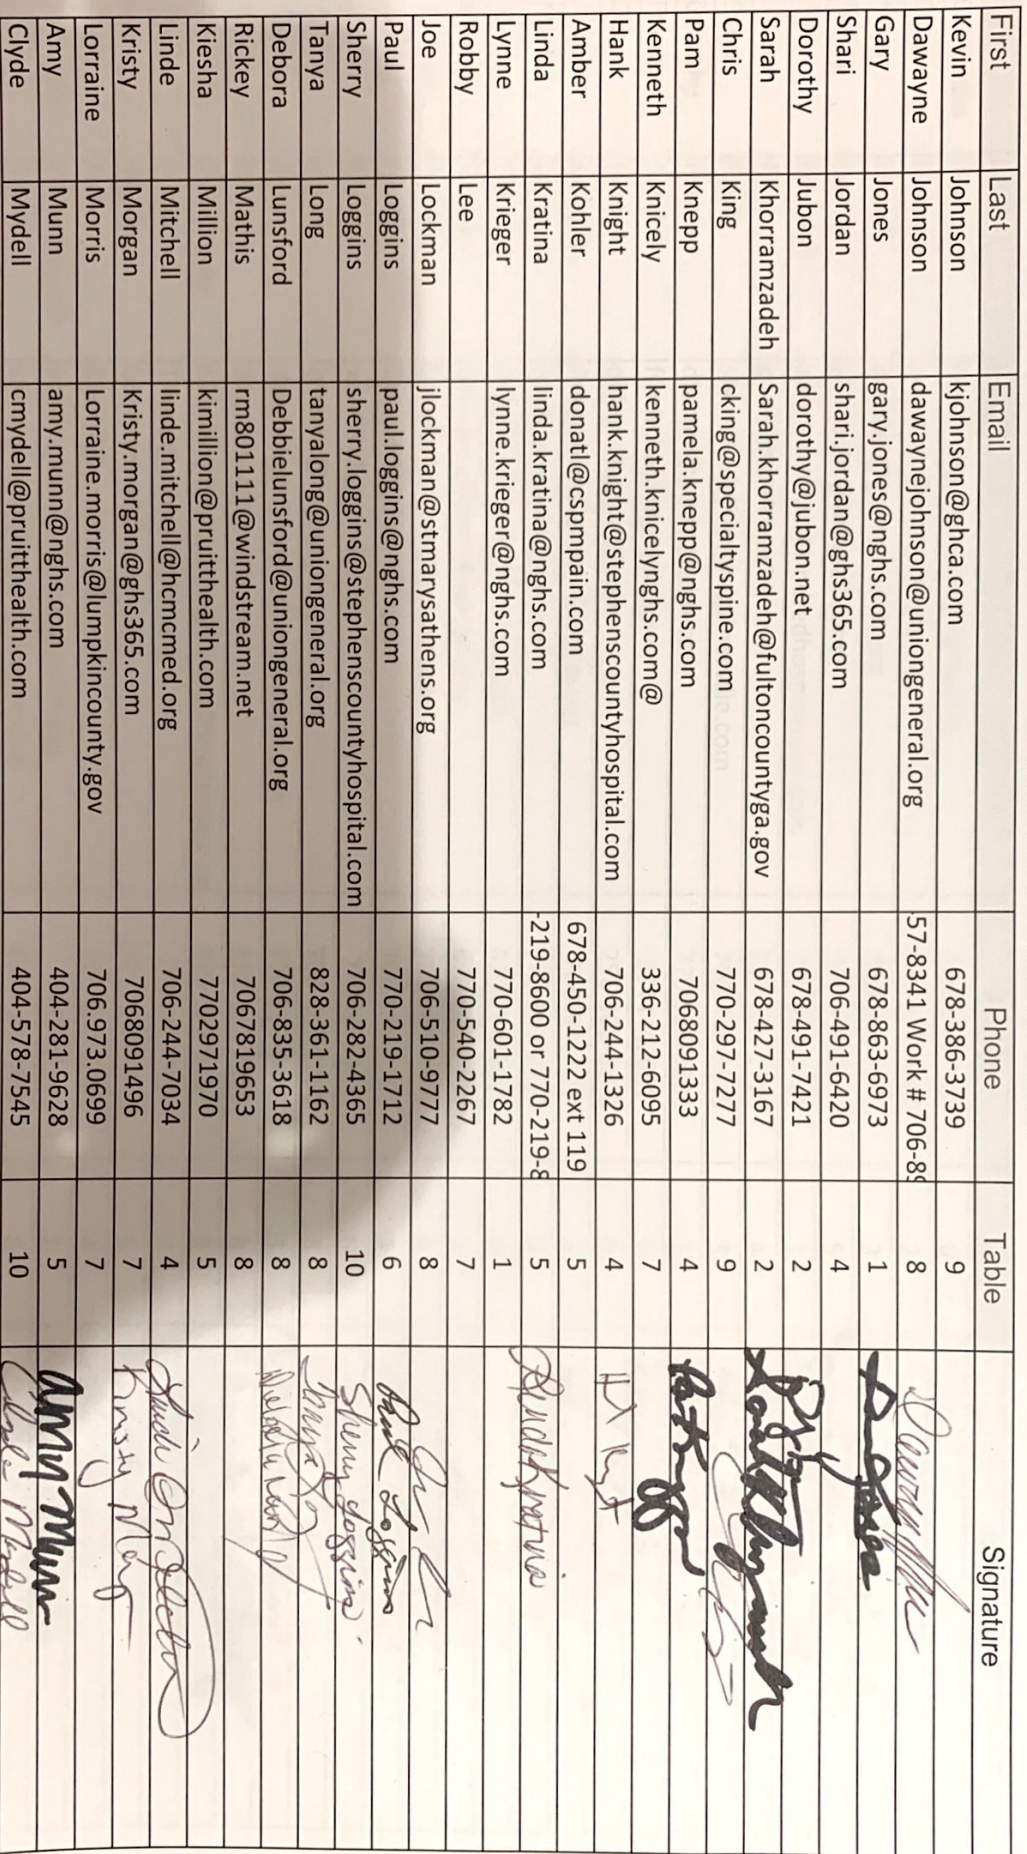 First Last Email Phone Table Signature
Kevin Johnson kjohnson@ghca.com 678-386-3739 9
Dawayne Johnson dawaynejohnson@uniongeneral.org 57-8341 Work # 706-89 8
Gary Jones gary.jones@nghs.com 678-863-6973 1
Shari Jordan shari.jordan@ghs365.com 706-491-6420 4
Dorothy Jubon dorothy@jubon.net 678-491-7421 2
Sarah Khorramzadeh Sarah.khorramzadeh@fultoncountyga.gov 678-427-3167 2
Chris King cking@specialtyspine.com 770-297-7277 9
Pam Knepp pamela.knepp@nghs.com 7068091333 4
Kenneth Knicely kenneth.knicelynghs.com@ 336-212-6095 7
Hank Knight hank.knight@stephenscountyhospital.com 706-244-1326 4
Amber Kohler donatl@cspmpain.com 678-450-1222 ext 119 5
Linda Kratina linda.kratina@nghs.com -219-8600 or 770-219-8 5 Linda Kratina
Lynne Krieger lynne.krieger@nghs.com 770-601-1782 1
Robby Lee 770-540-2267 7
Joe Lockman jlockman@stmarysathens.org 706-510-9777 8
Paul Loggins paul.loggins@nghs.com 770-219-1712 6 Paul Loggins
Sherry Loggins sherry.loggins@stephenscountyhospital.com 706-282-4365 10 Sherry Loggins
Tanya Long tanyalong@uniongeneral.org 828-361-1162 8
Debora Lunsford Debbielunsford@uniongeneral.org 706-835-3618 8
Rickey Mathis rm80111@windstream.net 7067819653 8
Kiesha Million kimillion@pruitthealth.com 7702971970 5
Linde Mitchell linde.mitchell@hcmcmed.org 706-244-7034 4
Kristy Morgan Kristy.morgan@ghs365.com 7068091496 7 Kristy
Lorraine Morris Lorraine.morris@lumpkincounty.gov 706.973.0699 7
Amy Munn amy.munn@nghs.com 404-281-9628 5 Amy Munn
Clyde Mydell cmydell@pruitthealth.com 404-578-7545 10 Clyde Mydell